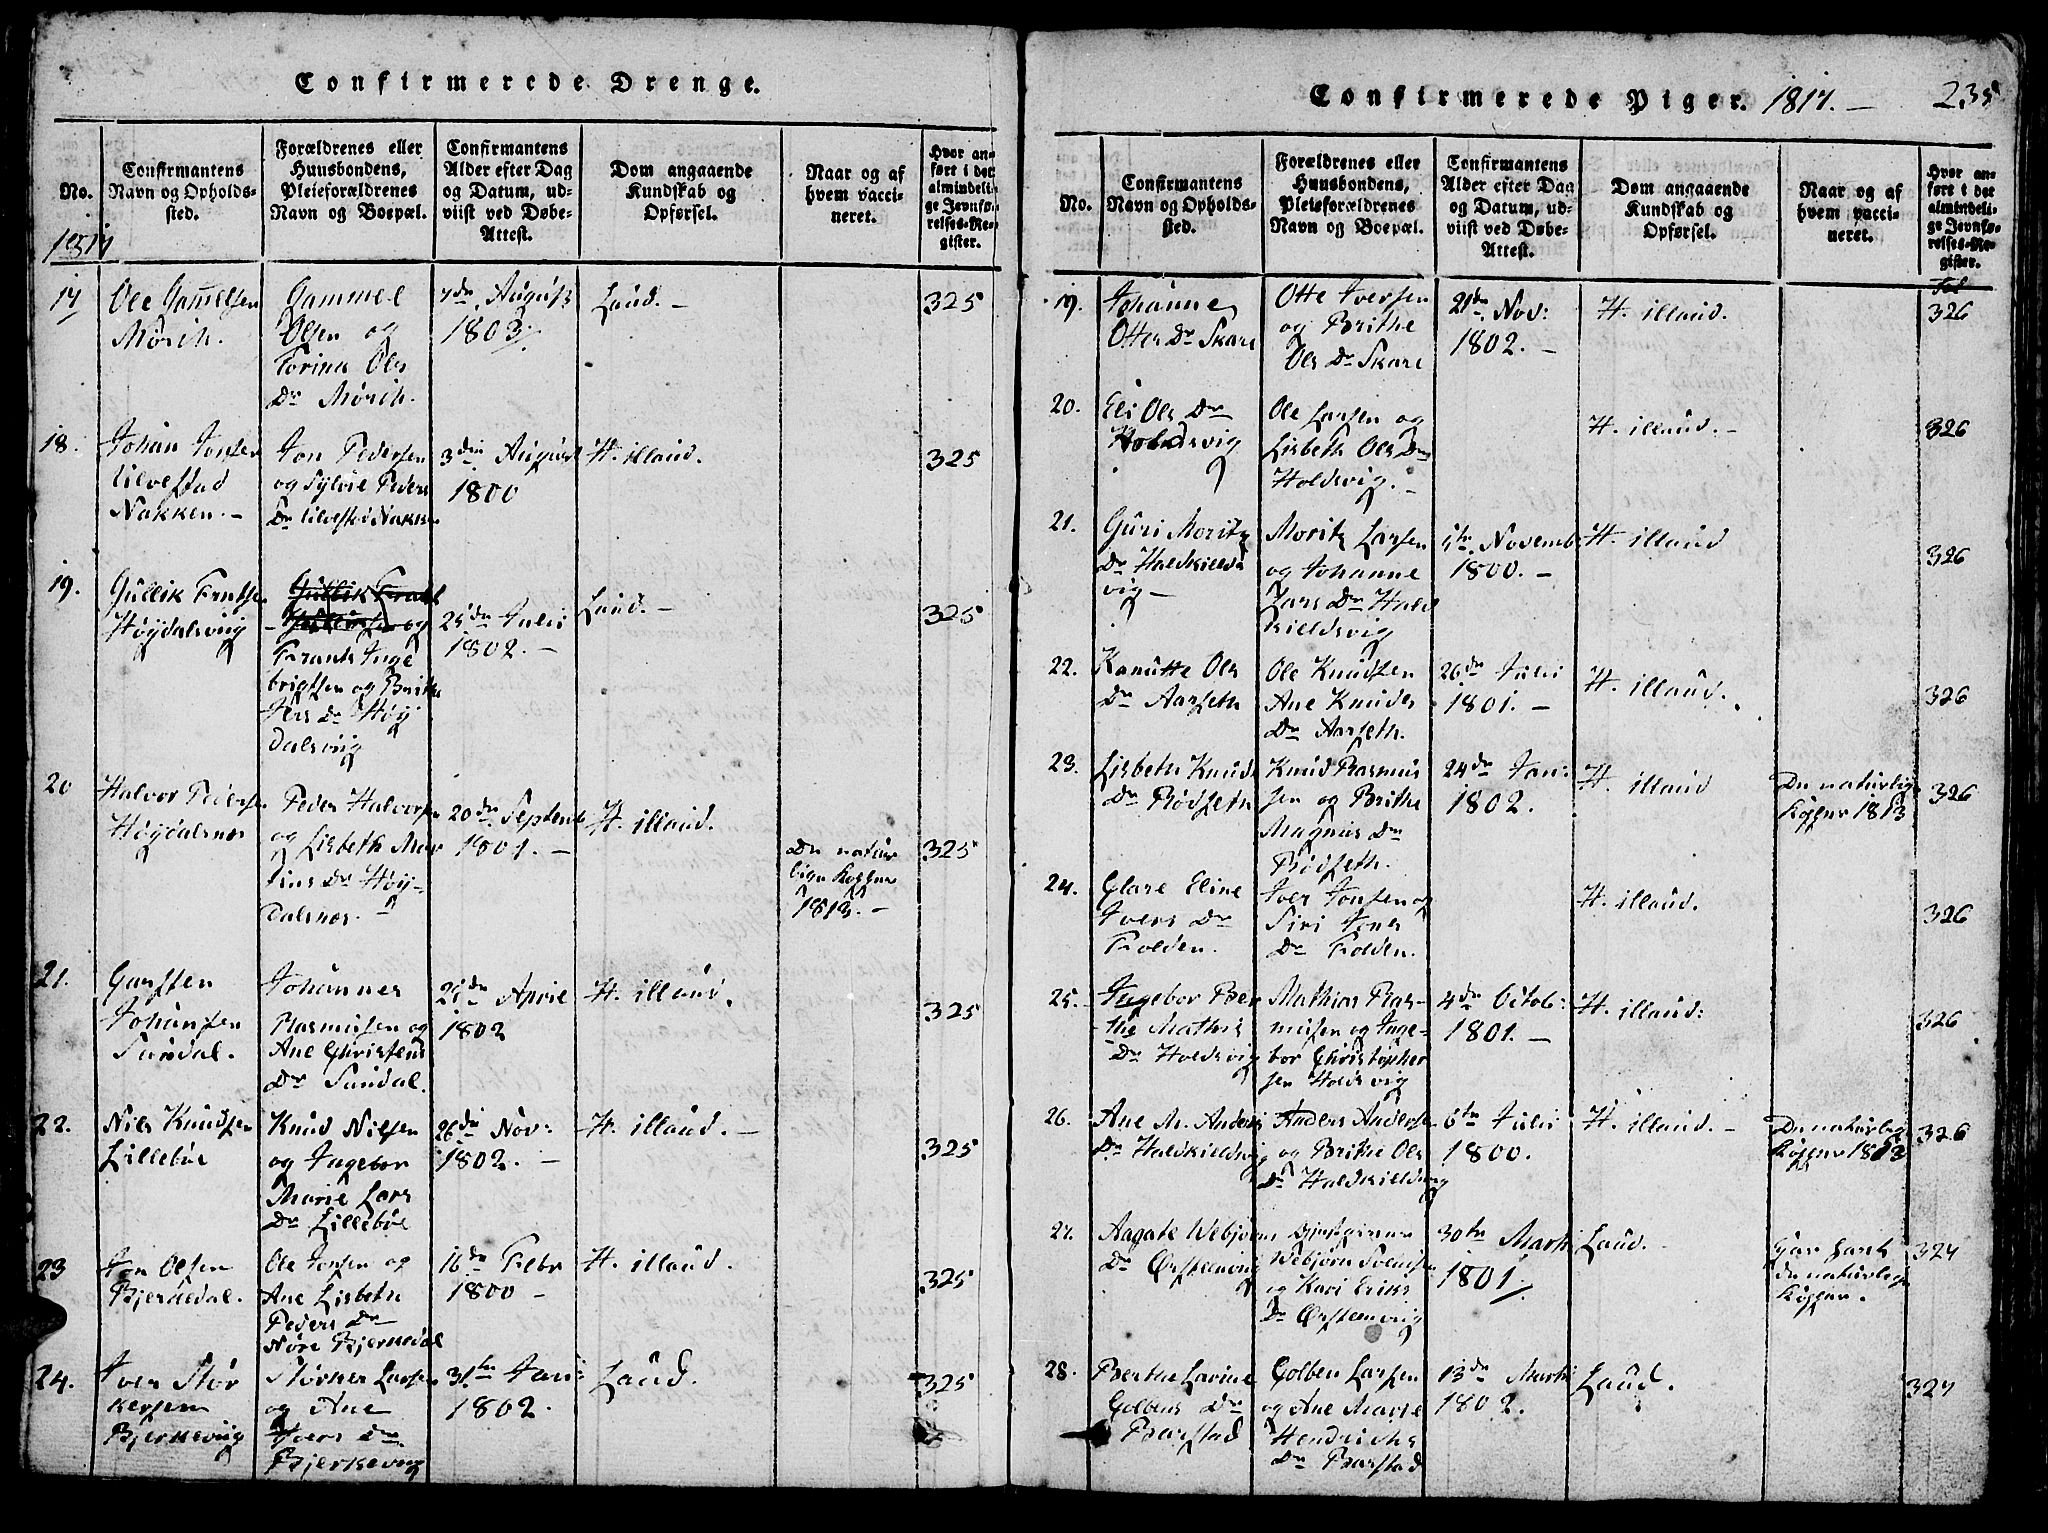 Confirmerede Drenge.
No.
Confirmantens
Navn og Opholds-
sted.
Forældrenes eller
Huusbondens,
Pleieforældrenes
Navn og Boepæl.
Confirmantens
Alder efter Dag
og Datum, ud-
viist ved Døbe-
Attest.
Dom angaaende
Kundskab og
Opførsel.
Naar og af
hvem vacci-
neret.
Hvor an-
ført i det
almindeli-
ge Jevnfø-
relses-Re-
gister.
1817
17
Ole Gam̄elsen
Mörch.
Gammel
Olsen og
Torina Ols
Dr Mörch.
7de August
1803.
Laud. -
325
18.
Johan Jonsen
Ulvestad
Nakken. -
Jon Pedersen
og Sylvie Peders
Dr Ulvestad Nakken
3die August
1800
H. illaud.
325
19.
Gullik Frantsen
Høydalsvig
Gullik
og
Frants Inge
brigtsen og Brithe
Dr Høy
dalsvig
25de Julii
1802. -
Laud. -
325
20
Halvor Pedersen
Høydalsnes
Peder Halvorsen
og Lisbeth Mar
tins Dr Høy-
dalsnes. -
20de Septemb
1801. -
H. illaud.
De natur
lige Kopper
1813. -
325
21.
Garsten
Johansen
Sundal.
Johannes
Rasmusen og
Ane Christens
Dr Sundal.
April
1802
H. illaud.
325
22.
Nils Knudsen
Lillebøe
Knud Nilsen
og Ingebor
Marie Lars
Dr Lillebøe
26de Nov:
1802. -
H. illaud. -
325
23
Jon Olsen
Bjerkedal.
Ole Jonsen og
Ane Lisbeth
Peders Dr
Nore Bjerkedal
16de Febr
1800 -
H. illaud.
325
24.
Iver Stör
kersen
Bjerkevig
Störker Larsen
og Ane
Ivers Dr
Bjerkevig
31te Jan:
1802.
Laud.
325
Confirmerede Piger. 1817. -
235
No.
Confirmantens
Navn og Opholds-
sted.
Forældrenes eller
Huusbondens,
Pleieforældrenes
Navn og Boepæl.
Confirmantens
Alder efter Dag
og Datum, ud-
viist ved Døbe-
Attest.
Dom angaaende
Kundskab og
Opførsel.
Naar og af
hvem vacci-
neret.
Hvor an-
ført i det
almindeli-
ge Jevnfø-
relses-Re-
gister.
Fol
19.
Johanne
Ottes Dr Skare
Otte Iversen
og Brithe
Ols Dr Skare
21de Nov:
1802. -
H. illaud.
326
20.
Eli Ols Dr
Holdsvig
Ole Larsen og
Lisbeth Ols Dr
Holdsvig. -
H. illaud. -
326
21.
Guri Moritz
Dr Haldkields
vig -
Moritz Larsen
og Johanne
Lars Dr Hald
kieldsvig
1te Novemb
1800. -
H. illaud
326
22.
Kanutte Ols
Dr Aarseth
Ole Knudsen
Ane Knuds
Dr Aarseth.
26de Julii
1801. -
H. illaud.
326
23.
Lisbeth Knuds
Dr Rödseth
Knud Rasmus
sen og Brithe
Magnus Dr
Rödseth.
24de Jan:
1802.
H. illaud
De naturlige
Kopper 1813
326
24.
Clare Eline
Ivers Dr
Folden.
Iver Jonsen og
Siri Jons
Dr Folden.
H. illaud.
326
25.
Ingebor Ber
the Mathis
Dr Holdsvig
Mathias Ras-
musen og Inge-
bor Christopher
sen Holdsvig
4de Octob:
1801. -
H. illaud:
326
26.
Ane M. Anders
Dr Haldkieldsvig
Anders Andersen
og Brithe Ols
Dr Haldkieldsvig
6te Julii
1800.
H. illaud. -
De naturlige
Kopper 1813
326
27.
Aagate Webjørns
Dr Ørsteenvig
Webjørn
og Kari Eriks
Dr Ørsteenvig
30te Marti
1801.
Laud. -
har havt
de naturlige
Kopper.
327
28.
Berthe Lavine
Colbens Dr
Barstad
Colben Larsen
og Ane Marie
Hendrichs
Dr Barstad
13de Marti
1802.
Laud.
327